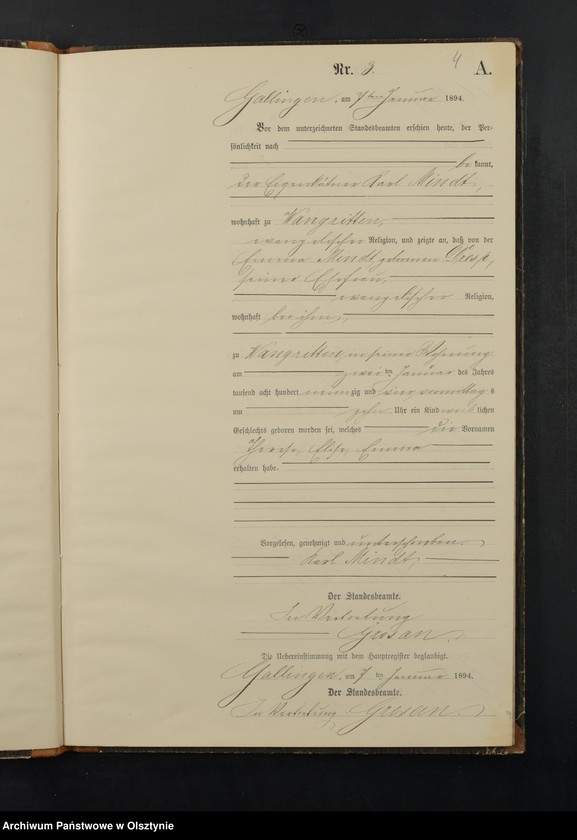 4
Nr. 3. A.
Gallingen, am 7ten Januar 1894.
Vor dem unterzeichneten Standesbeamten erschien heute, der Per-
sönlichkeit nach
be kannt,
der Eigenkätner Karl Mindt,
wohnhaft zu Wangritten,
evangelischer Religion, und zeigte an, daß von der
Emma Mindt, geborenen
seiner Ehefrau,
evangelischer Religion,
wohnhaft bei ihm,
zu Wangritten, in seiner Wohnung
am zwei ten Januar des Jahres
tausend acht hundert neunzig und vier vormittag s
um zehn Uhr ein Kind weib lichen
Geschlechts geboren worden sei, welches die Vornamen
Therese, Elise, Emma
erhalten habe.
Vorgelesen, genehmigt und unterschrieben
Karl Mindt,
Der Standesbeamte.
In Vertretung
Gresan.
Die Uebereinstimmung mit dem Hauptregister beglaubigt.
Gallingen, am 7 ten Januar 1894.
Der Standesbeamte.
In Vertretung Gresan.
Archiwum Państwowe w Olsztynie